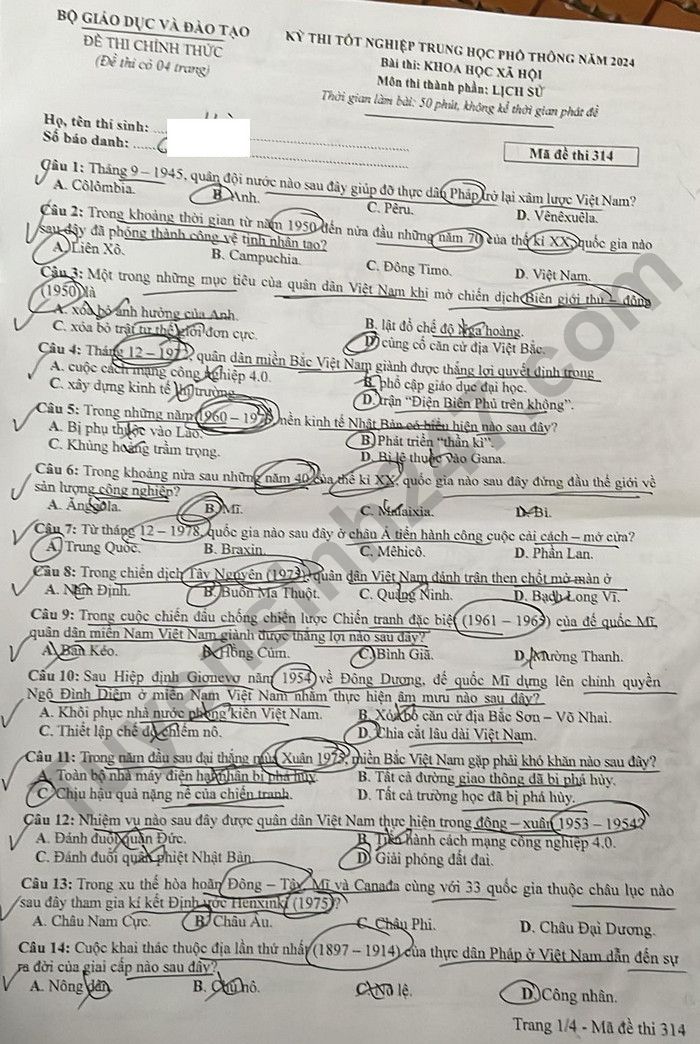 BỘ GIÁO DỤC VÀ ĐÀO TẠO
ĐỀ THI CHÍNH THỨC
(Đề thi có 04 trang)
KỲ THI TỐT NGHIỆP TRUNG HỌC PHỔ THÔNG NĂM 2024
Bài thi: KHOA HỌC XÃ HỘI
Môn thi thành phần: LỊCH SỬ
Thời gian làm bài: 50 phút, không kể thời gian phát đề
Họ, tên thí sinh:
Số báo danh:
Mã đề thi 314
Câu 1: Tháng 9 – 1945, quân đội nước nào sau đây giúp đỡ thực dân Pháp trở lại xâm lược Việt Nam?
A. Côlômbia. B. Anh. C. Pêru. D. Vênêxuêla.
Câu 2: Trong khoảng thời gian từ năm 1950 đến nửa đầu những năm 70 của thế kỉ XX, quốc gia nào
sau đây đã phóng thành công vệ tinh nhân tạo?
A. Liên Xô. B. Campuchia. C. Đông Timo. D. Việt Nam.
Câu 3: Một trong những mục tiêu của quân dân Việt Nam khi mở chiến dịch Biên giới thu – đông
(1950) là
A. xóa bỏ ảnh hưởng của Anh. B. lật đổ chế độ Nga hoàng.
C. xóa bỏ trật tự thế giới đơn cực. D. củng cố căn cứ địa Việt Bắc.
Câu 4: Tháng 12 – 1972, quân dân miền Bắc Việt Nam giành được thắng lợi quyết định trong
A. cuộc cách mạng công nghiệp 4.0. B. phổ cập giáo dục đại học.
C. xây dựng kinh tế thị trường. D. trận “Điện Biên Phủ trên không”.
Câu 5: Trong những năm 1960 – 1973, nền kinh tế Nhật Bản có biểu hiện nào sau đây?
A. Bị phụ thuộc vào Lào. B. Phát triển “thần kì”.
C. Khủng hoảng trầm trọng. D. Bị lệ thuộc vào Gana.
Câu 6: Trong khoảng nửa sau những năm 40 của thế kỉ XX, quốc gia nào sau đây đứng đầu thế giới về
sản lượng công nghiệp?
A. Ănggôla. B. Mĩ. C. Malaixia. D. Bỉ.
Câu 7: Từ tháng 12 – 1978, quốc gia nào sau đây ở châu Á tiến hành công cuộc cải cách – mở cửa?
A. Trung Quốc. B. Braxin. C. Mêhicô. D. Phần Lan.
Câu 8: Trong chiến dịch Tây Nguyên (1975), quân dân Việt Nam đánh trận then chốt mở màn ở
A. Nam Định. B. Buôn Ma Thuột. C. Quảng Ninh. D. Bạch Long Vĩ.
Câu 9: Trong cuộc chiến đấu chống chiến lược Chiến tranh đặc biệt (1961 – 1965) của đế quốc Mĩ,
quân dân miền Nam Việt Nam giành được thắng lợi nào sau đây?
A. Bản Kéo. B. Hồng Cúm. C. Bình Giã. D. Mường Thanh.
Câu 10: Sau Hiệp định Giơnevơ năm 1954 về Đông Dương, đế quốc Mĩ dựng lên chính quyền
Ngô Đình Diệm ở miền Nam Việt Nam nhằm thực hiện âm mưu nào sau đây?
A. Khôi phục nhà nước phong kiến Việt Nam. B. Xóa bỏ căn cứ địa Bắc Sơn – Võ Nhai.
C. Thiết lập chế độ chiếm nô. D. Chia cắt lâu dài Việt Nam.
Câu 11: Trong năm đầu sau đại thắng mùa Xuân 1975, miền Bắc Việt Nam gặp phải khó khăn nào sau đây?
A. Toàn bộ nhà máy điện hạt nhân bị phá hủy. B. Tất cả đường giao thông đã bị phá hủy.
C. Chịu hậu quả nặng nề của chiến tranh. D. Tất cả trường học đã bị phá hủy.
Câu 12: Nhiệm vụ nào sau đây được quân dân Việt Nam thực hiện trong đông – xuân 1953 – 1954?
A. Đánh đuổi quân Đức. B. Tiến hành cách mạng công nghiệp 4.0.
C. Đánh đuổi quân phiệt Nhật Bản. D. Giải phóng đất đai.
Câu 13: Trong xu thế hòa hoãn Đông – Tây, Mĩ và Canada cùng với 33 quốc gia thuộc châu lục nào
sau đây tham gia kí kết Định ước Henxinki (1975)?
A. Châu Nam Cực. B. Châu Âu. C. Châu Phi. D. Châu Đại Dương.
Câu 14: Cuộc khai thác thuộc địa lần thứ nhất (1897 – 1914) của thực dân Pháp ở Việt Nam dẫn đến sự
ra đời của giai cấp nào sau đây?
A. Nông dân. B. Chủ nô. C. Nô lệ. D. Công nhân.
Trang 1/4 - Mã đề thi 314
tuyensinh247.com